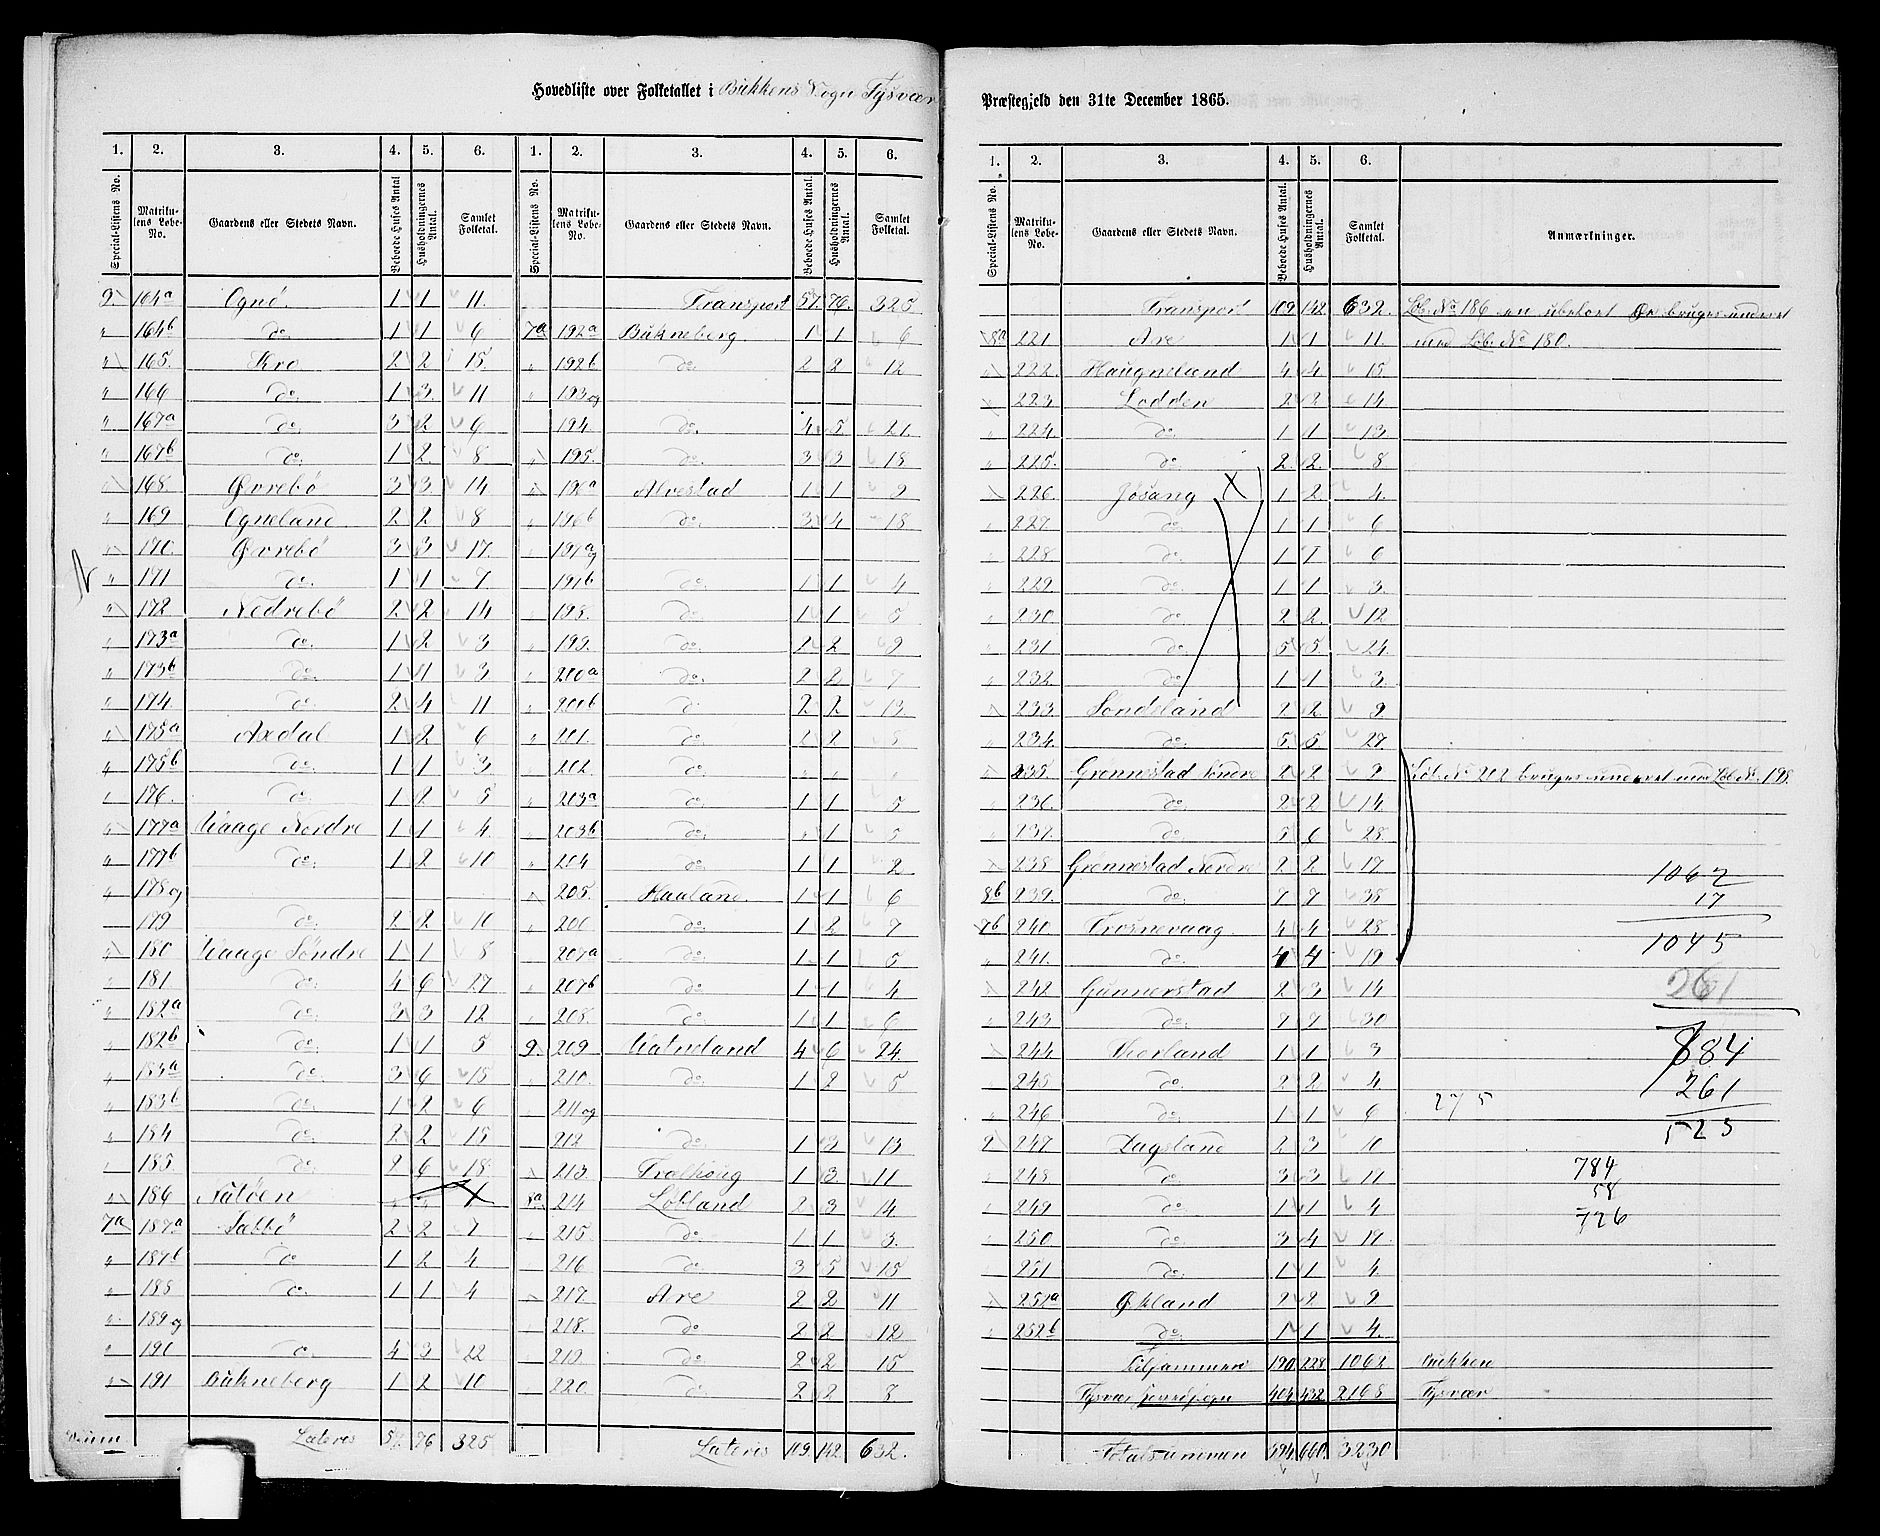 Hovedliste over Folketallet i Bukkens Sogn Tysvær
Præstegjeld den 31te December 1865.
1. 2. 3. 4. 5. 6. 1. 2. 3. 4. 5. 6.
Special-Listens No. Matrikulens Løbe-No. Gaardens eller Stedets Navn. Beboede Huses Antal Husholdningernes Antal. Samlet Folketal. Special-Listens No. Matrikulens Løbe-No. Gaardens eller Stedets Navn. Beboede Huses Antal. Husholdningernes Antal. Samlet Folketal.
9. 164a Ognø. 1 1 11.
" 164b do 1 1 6
" 165. Kro 2 2 15.
" 166 do 1 3. 11
" 167a do. 3 2 6
" 167b do. 1 2. 8
" 168. Øvrebø 3 3. 14
" 169 Ogneland. 2 2 8
" 170. Øvrebø 3 3 17.
" 171 do. 1 1 7
" 172 Nedrebø 2 2 14
" 173a do. 1 2 3
" 173b do. 1 1 3
" 174. do. 2 4 11
" 175a Axdal 1 2 6
" 175b do. 1 1 3
" 176. do. 1 2 5
" 177a Vaage Nordre 1 1 4.
" 177b do. 1 2 10
" 178 og
179 do. 2 2 10
" 180 Vaage Søndre 1 1 8
" 181 do. 4 6 27
" 182a do. 3 3 12
" 182b do. 1 1 5
" 183a do. 3 6 15
" 183b do. 1 2 6
" 184 do. 2 2 15
" 185. do. 2 6 18.
" 186 Natøen " "
7a 187a Sæbbø 2 2 7
" 187b do 1 2 4
" 188 do. 1 1 4
" 189 og
" 190 do. 4 3 22
" 191 Bukneberg 1 2 10
Lateris 57. 76 325
Transport 57. 76. 325
7a 192a Bukneberg 1 1 6
" 192b do. 2 2 12
" 193 og
194. do. 4 5 21.
" 195. do. 3 3 18
" 196a Alvestad 1 1 9
" 196b do. 3 4 18.
" 197a og
197b do. 1 1 4
" 198. do. 1 1 5
" 199. do. 2 2 9
" 200a do. 2 2 7
" 200b d 2 2 13.
" 201. do. 2 2 5
" 202. do " " "
" 203a do. 1 1 5
" 203b do. " 1 5
" 204 do. 1 1 2
" 205. Hauland. 1 1 6
" 206 do. 1 2 7
" 207a do. 1 1 5
" 207b do. 1 1 4
" 208. do. 1 1 6
9. 209 Vatneland 4 6 24.
" 210. do. 1 2 5
" 211 og
212 do. 1 3 13
" 213 Trælhoug 1 3. 11
8a 214 Løbland 2 3 14
" 215. do. 1 1 3.
" 216 do. 3 5 15
" 217. Are 2 2 11
" 218. do 2 2 12
" 219 do. 2 2 15
" 220 do. 2 2 8
Lateris 109. 142. 632.
1. 2. 3. 4. 5. 6.
Special-Listens No. Matrikulens Løbe-No. Gaardens eller Stedets Navn. Beboede Huses Antal. Husholdningernes Antal. Samlet Folketal. Anmærkninger.
Transport 109. 142. 632. Løb. No 186 en ubeboet Ø bruges underet
8a 221 Are 1 1 11. med Løb. No 180.
" 222. Haugneland 4 4 15
" 223. Lodden 2 2 14.
" 224. do. 1 1 13.
" 225. do 2. 2. 8
" 226. Jøsang X 1 2 4.
" 227. do 1 1 6
" 228 do. 1 1 6
" 229. do. 1 1 3
" 230. do. 2 2. 12
" 231. do 5 5 24.
" 232. do. 1 1 3.
" 233. Søndeland 2 2 9
" 234. do. 5 5 27
" 235. Grønnestad Søndre 2 2 9 Løb. No 202 bruges underet med Løb. No. 198.
" 236. do. 2 2 14.
" 237. do. 5 6 28.
" 238 Grønnestad Nordre 2 2 17
8b 239. do. 7 7 38
7b 240 Trosnevaag. 4 4 28
" 241. do. 4 4 19
" 242 Gunnerstad 2 3 14
" 243 do. 7 7 30
" 244 Thorland 1 1 3
" 245 do. 2 2 4.
" 246 do. 1 1 6
9 247 Dagsland 2 3 10
" 248 do. 3 3 11
" 249 do. 1 1 4
" 250 do. 3 4 19.
" 251 do. 1 1 4.
" 251a Økland 2 2 9
" 252b do. 1 1 4.
Tilsammen 190. 228 1062 Bukken
Tysvær Hovedsogn 404 432 2168 Tysvær
Totalsummen 594. 660. 3230
1062
17
1045
261
884
261
523
275
784
58
726